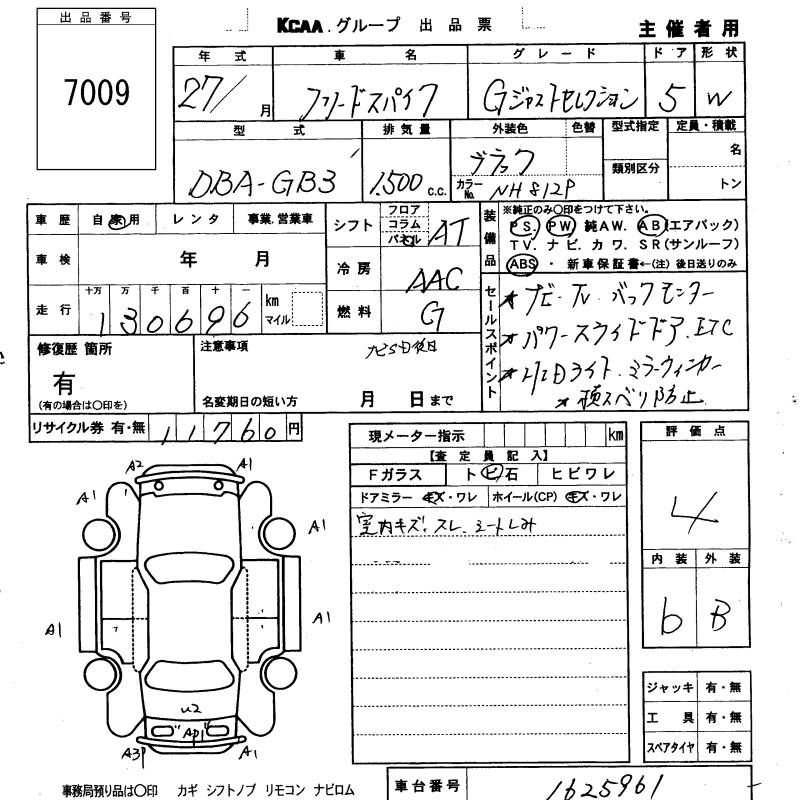 出品番号
7009
KCAA.グループ 出品票
主催者用
年式 車名 グレード ドア 形状
27/ 月 フリードスパイク Gジャストセレクション 5 W
型式 排気量 外装色 色替 型式指定 定員・積載
DBA-GB3 1500 c.c. ブラック 名
カラーNo. NH812P 類別区分 トン
車歴 自家用 レンタ 事業,営業車
シフト フロア コラム パネル AT
装備品 ※純正のみ○印をつけて下さい。
PS. PW. 純AW. AB(エアバック)
TV. ナビ. カワ. SR(サンルーフ)
ABS ・ 新車保証書←(注)後日送りのみ
車検 年 月
冷房 AAC
走行 十万 万 千 百 十 一 km マイル
130696
燃料 G
セールスポイント
★ナビ・TV バックモニター
★パワースライドドア. ETC
★HIDライト.ミラーウィンカー
★横スベリ防止
修復歴 箇所
有
(有の場合は○印を)
注意事項
ナビSD後日
名変期日の短い方 月 日まで
リサイクル券 有・無 11760円
現メーター指示 km
【査定員記入】
Fガラス トビ石 ヒビワレ
ドアミラー キズ・ワレ ホイール(CP) キズ・ワレ
室内キズ.スレ.シートしみ
評価点
4
内装 外装
b B
A2 A1
A1 A1
A1 A1
U2
AP1
A3P A1
ジャッキ 有・無
工具 有・無
スペアタイヤ 有・無
事務局預り品は○印 カギ シフトノブ リモコン ナビロム
車台番号 1625961